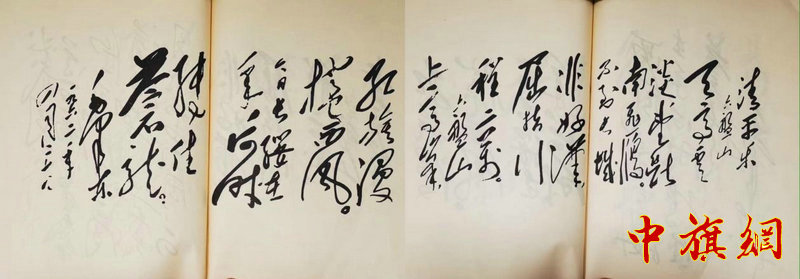 清平乐
六盤山
天高云
淡望断
南飞雁。
不到长城
非好漢
屈指行
程二万。
六盤山
上高峰
红旗漫
捲西风。
今日长缨在
手何时
缚住
蒼龙。
毛泽东
一九六二年
中旗網